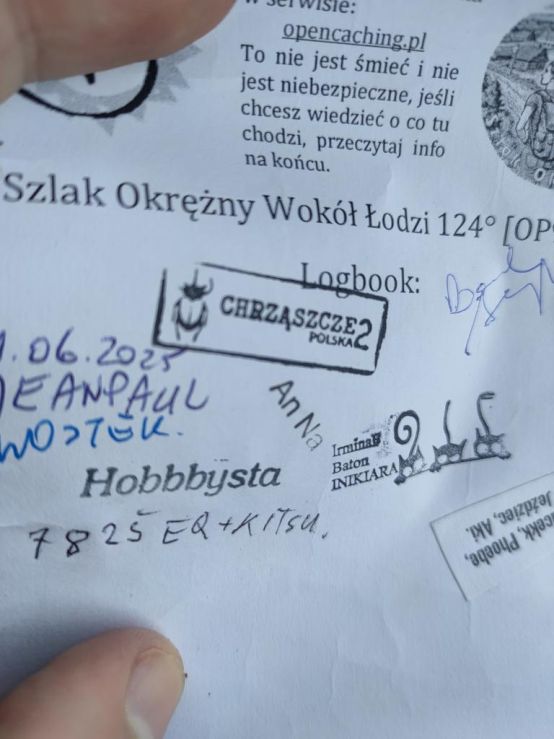 w serwisie:
opencaching.pl
To nie jest śmieć i nie
jest niebezpieczne, jeśli
chcesz wiedzieć o co tu
chodzi, przeczytaj info
na końcu.
Szlak Okrężny Wokół Łodzi 124° [OP
Logbook:
CHRZĄSZCZE2
POLSKA
.06.2025
JEANPAUL
WOJTEK.
An Na
Irmina
Baton
INIKIARA
Hobbbysta
7825 EQ+KITSU.
Phoebe,
Jeździec, Aki.